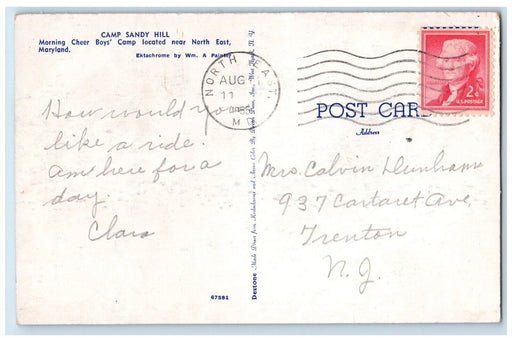 CAMP SANDY HILL
Morning Cheer Boys' Camp located near North East,
Maryland.
Ektachrome by Wm. A Painter
NORTH EAST
AUG
11
M
2¢
U.S. POSTAGE
POST CARD
Address
How would you
like a ride.
am here for a
day.
Clara
Mrs. Calvin Dunham
937 Cartaret Ave.
Trenton
N. J.
Dextone
67581